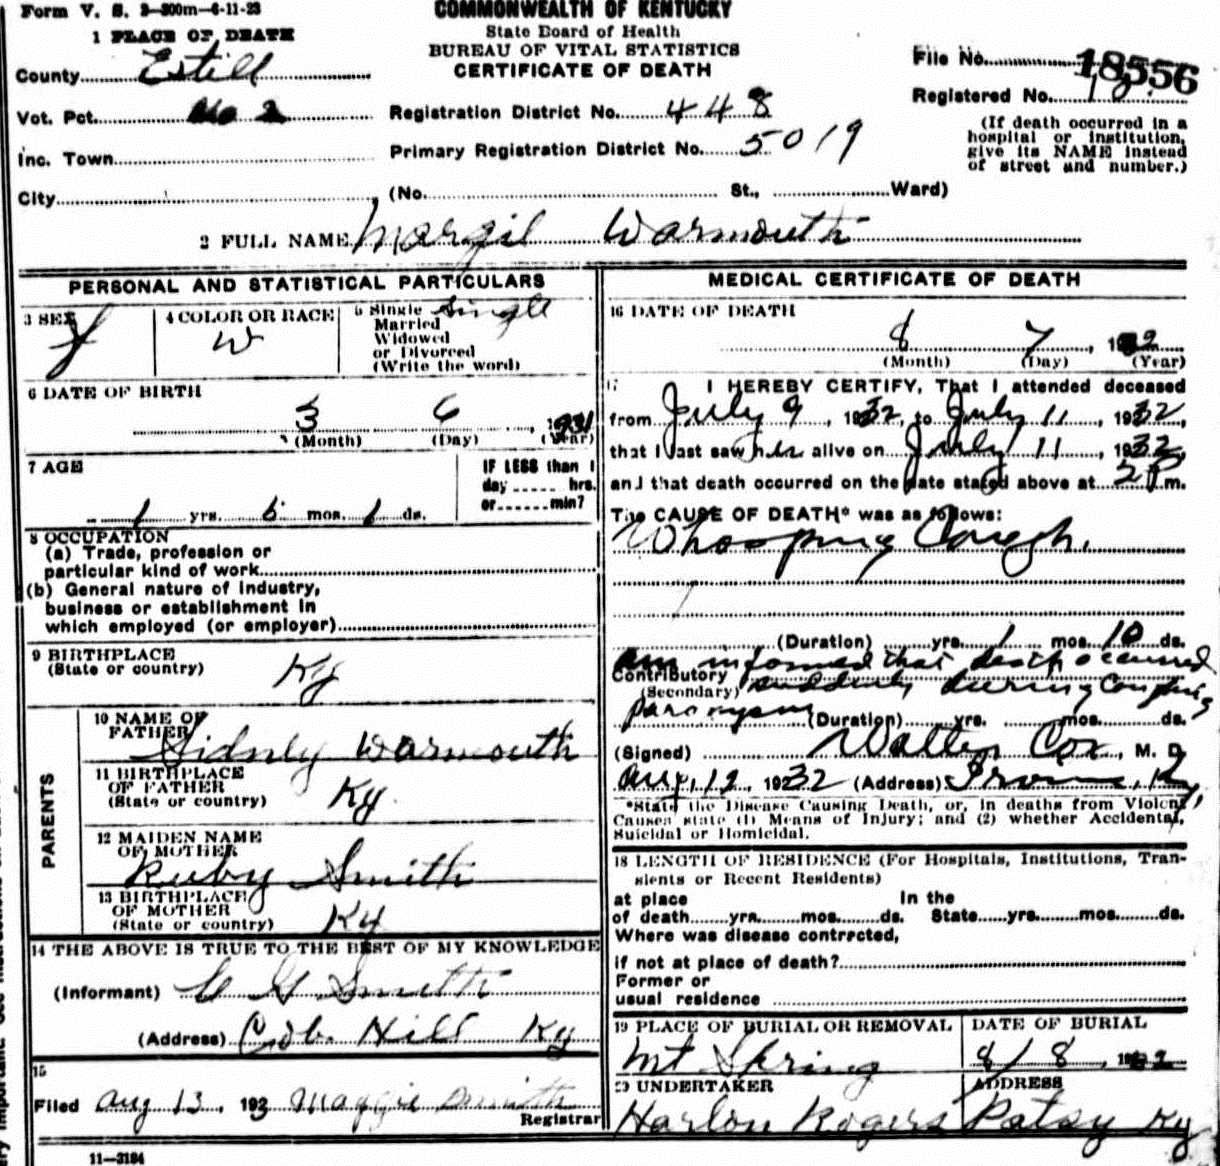 Form V. S. 3-300m-6-11-23
COMMONWEALTH OF KENTUCKY
State Board of Health
BUREAU OF VITAL STATISTICS
CERTIFICATE OF DEATH
1 PLACE OF DEATH
County Estill
File No. 18556
Registered No.
Vot. Pct. No 2
Registration District No. 448
(If death occurred in a hospital or institution, give its NAME instead of street and number.)
Inc. Town
Primary Registration District No. 5019
City (No. St., Ward)
2 FULL NAME Margil Warmouth
PERSONAL AND STATISTICAL PARTICULARS
3 SEX f
4 COLOR OR RACE W
5 Single Married Widowed or Divorced (Write the word) Single
6 DATE OF BIRTH
3 6, 1931
(Month) (Day) (Year)
7 AGE
1 yrs. 5 mos. 1 ds.
IF LESS than 1 day hrs. or min?
8 OCCUPATION
(a) Trade, profession or
particular kind of work
(b) General nature of industry,
business or establishment in
which employed (or employer)
9 BIRTHPLACE
(State or country) Ky
PARENTS
10 NAME OF FATHER Sidney Warmouth
11 BIRTHPLACE OF FATHER
(State or country) Ky.
12 MAIDEN NAME OF MOTHER Ruby Smith
13 BIRTHPLACE OF MOTHER
(State or country) Ky
14 THE ABOVE IS TRUE TO THE BEST OF MY KNOWLEDGE
(Informant) Smith
(Address) Cob Hill Ky
15
Filed Aug 13, 193 Maggie Smith
Registrar
11-3184
MEDICAL CERTIFICATE OF DEATH
16 DATE OF DEATH
8 7, 1932
(Month) (Day) (Year)
17 I HEREBY CERTIFY, That I attended deceased
from July 9, 1932, to July 11, 1932,
that I last saw her alive on July 11, 1932,
and that death occurred on the date stated above at 2 P.m.
The CAUSE OF DEATH* was as follows:
Whooping Cough.
(Duration) yrs. 1 mos. 10 ds.
am informed that death occurred
Contributory
(Secondary) suddenly during coughing
paroxysm (Duration) yrs. mos. ds.
(Signed) Walter Cox, M. D.
Aug, 12, 1932 (Address) Irvine, Ky,
*State the Disease Causing Death, or, in deaths from Violent
Causes state (1) Means of Injury; and (2) whether Accidental,
Suicidal or Homicidal.
18 LENGTH OF RESIDENCE (For Hospitals, Institutions, Tran-
sients or Recent Residents)
at place In the
of death yrs. mos. ds. State yrs. mos. ds.
Where was disease contracted,
if not at place of death?
Former or
usual residence
19 PLACE OF BURIAL OR REMOVAL Mt Spring
DATE OF BURIAL 8/8, 1932
20 UNDERTAKER Harlon Rogers
ADDRESS Patsy Ky